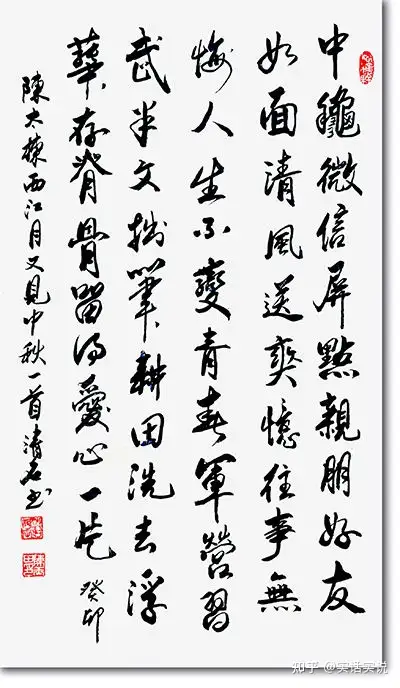 中龝微信屏點親朋好友
如面清風送爽憶往事無
悔人生不變青春軍營習
武半文拙筆耕田洗去浮
華存脊骨留得愛心一片 癸卯
陳太棟西江月又見中秋一首清石書
知乎 @实话实说